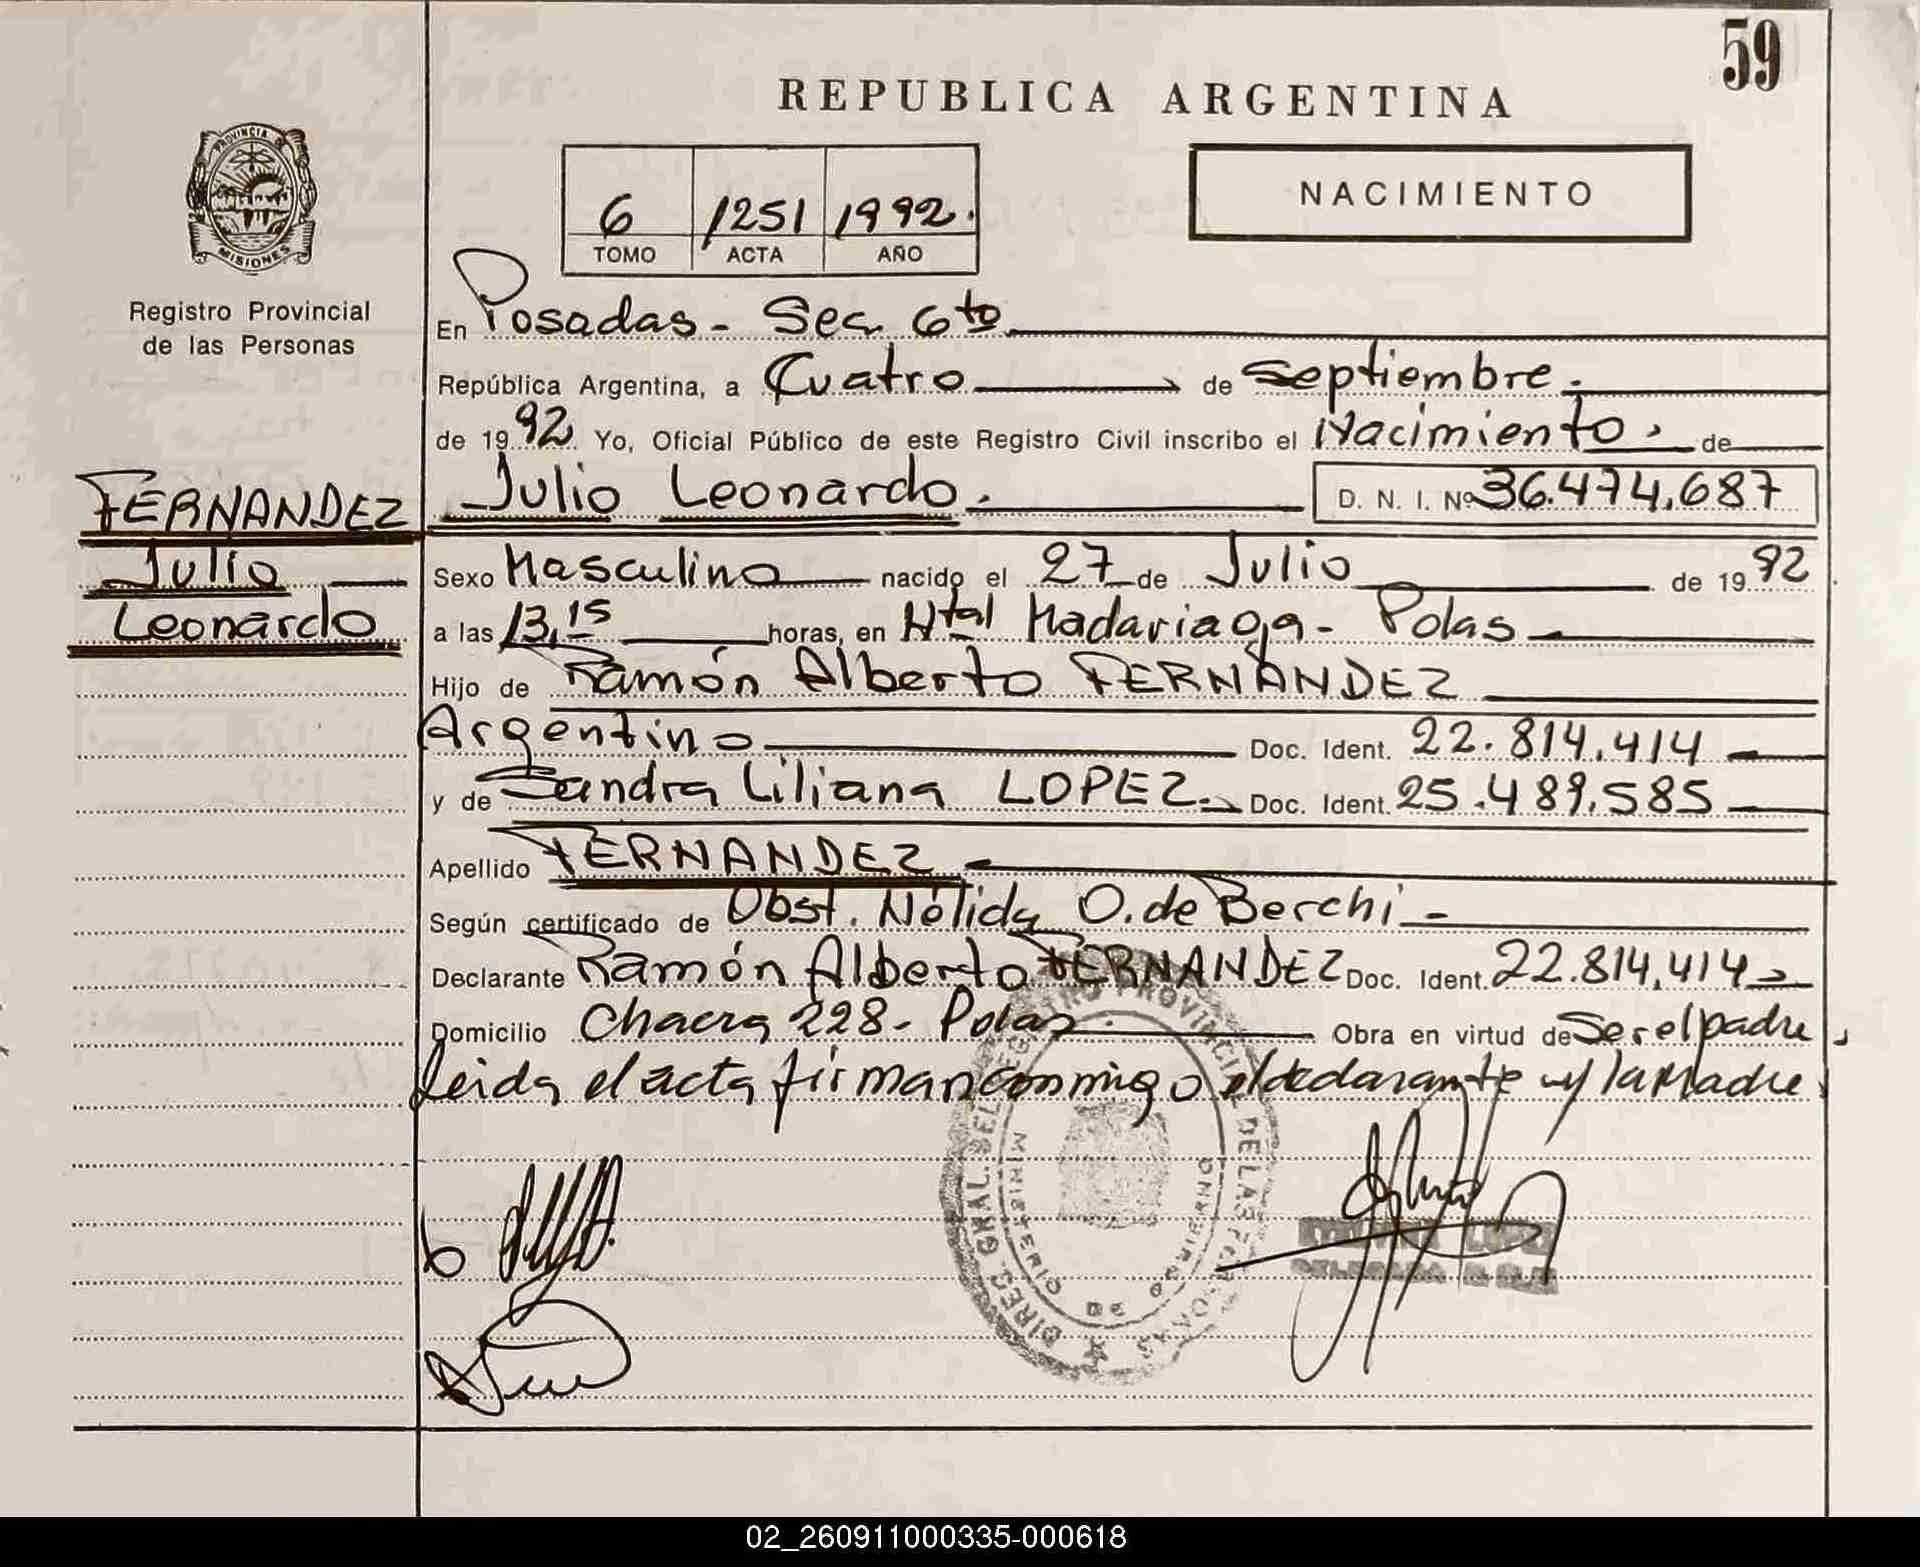 59
REPUBLICA ARGENTINA
PROVINCIA
MISIONES
Registro Provincial
de las Personas
6 1251 1992.
TOMO ACTA AÑO
NACIMIENTO
En Posadas - Sec. 6to
República Argentina, a Cuatro de Septiembre.
de 1992. Yo, Oficial Público de este Registro Civil inscribo el Nacimiento. de
FERNANDEZ
Julio
Leonardo
Julio Leonardo. D. N. I. Nº 36.474.687
Sexo Masculino nacido el 27 de Julio de 1992
a las 13,15 horas, en Htal Madariaga - Pdas
Hijo de Ramón Alberto FERNANDEZ
Argentino Doc. Ident. 22.814.414
y de Sandra Liliana LOPEZ. Doc. Ident. 25.489.585
Apellido FERNANDEZ
Según certificado de Obst. Nélida O. de Berchi -
Declarante Ramón Alberto FERNANDEZ Doc. Ident. 22.814.414
Domicilio Chacra 228 - Pdas. Obra en virtud de Ser el padre,
leida el acta firman conmigo el declarante y la Madre
DIREC. GRAL. DEL REGISTRO PROVINCIAL DE LAS PERSONAS
MINISTERIO DE GOBIERNO
LOPEZ
02_260911000335-000618